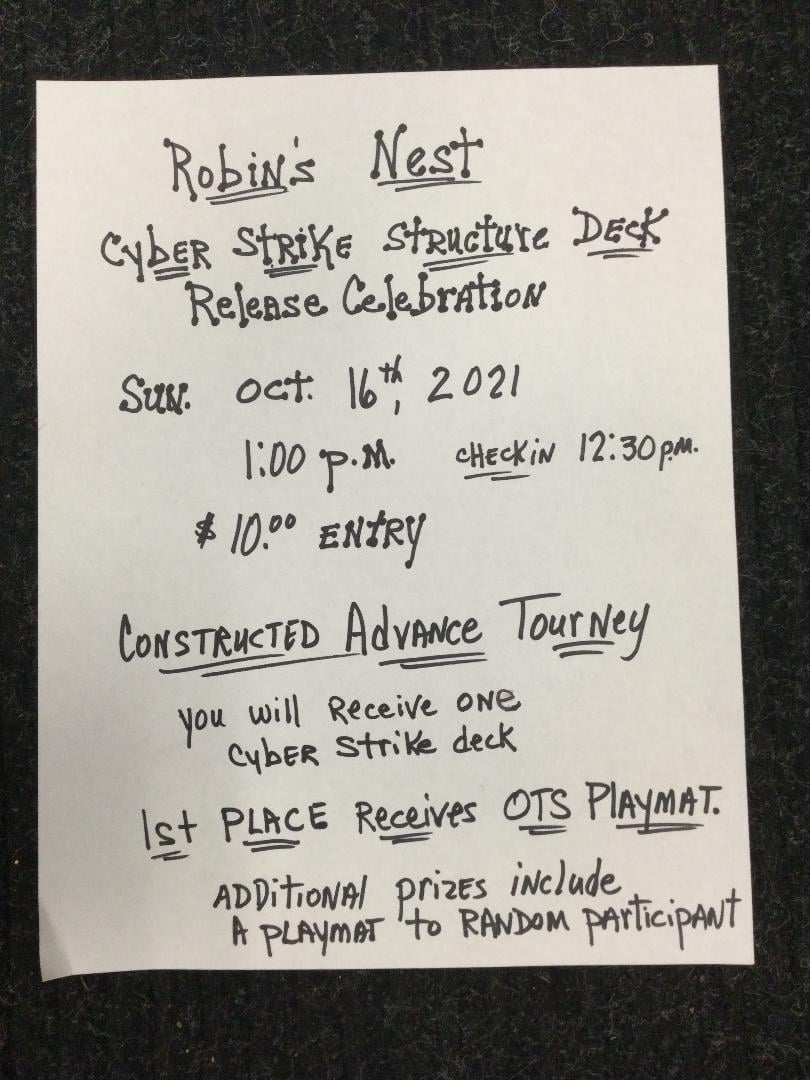 Robin's Nest
Cyber Strike Structure Deck
Release Celebration
Sun. Oct. 16th, 2021
1:00 p.m. Check in 12:30 p.m.
$10.00 Entry
Constructed Advance Tourney
you will Receive one
Cyber Strike deck
1st Place Receives OTS Playmat.
Additional prizes include
A Playmat to Random participant